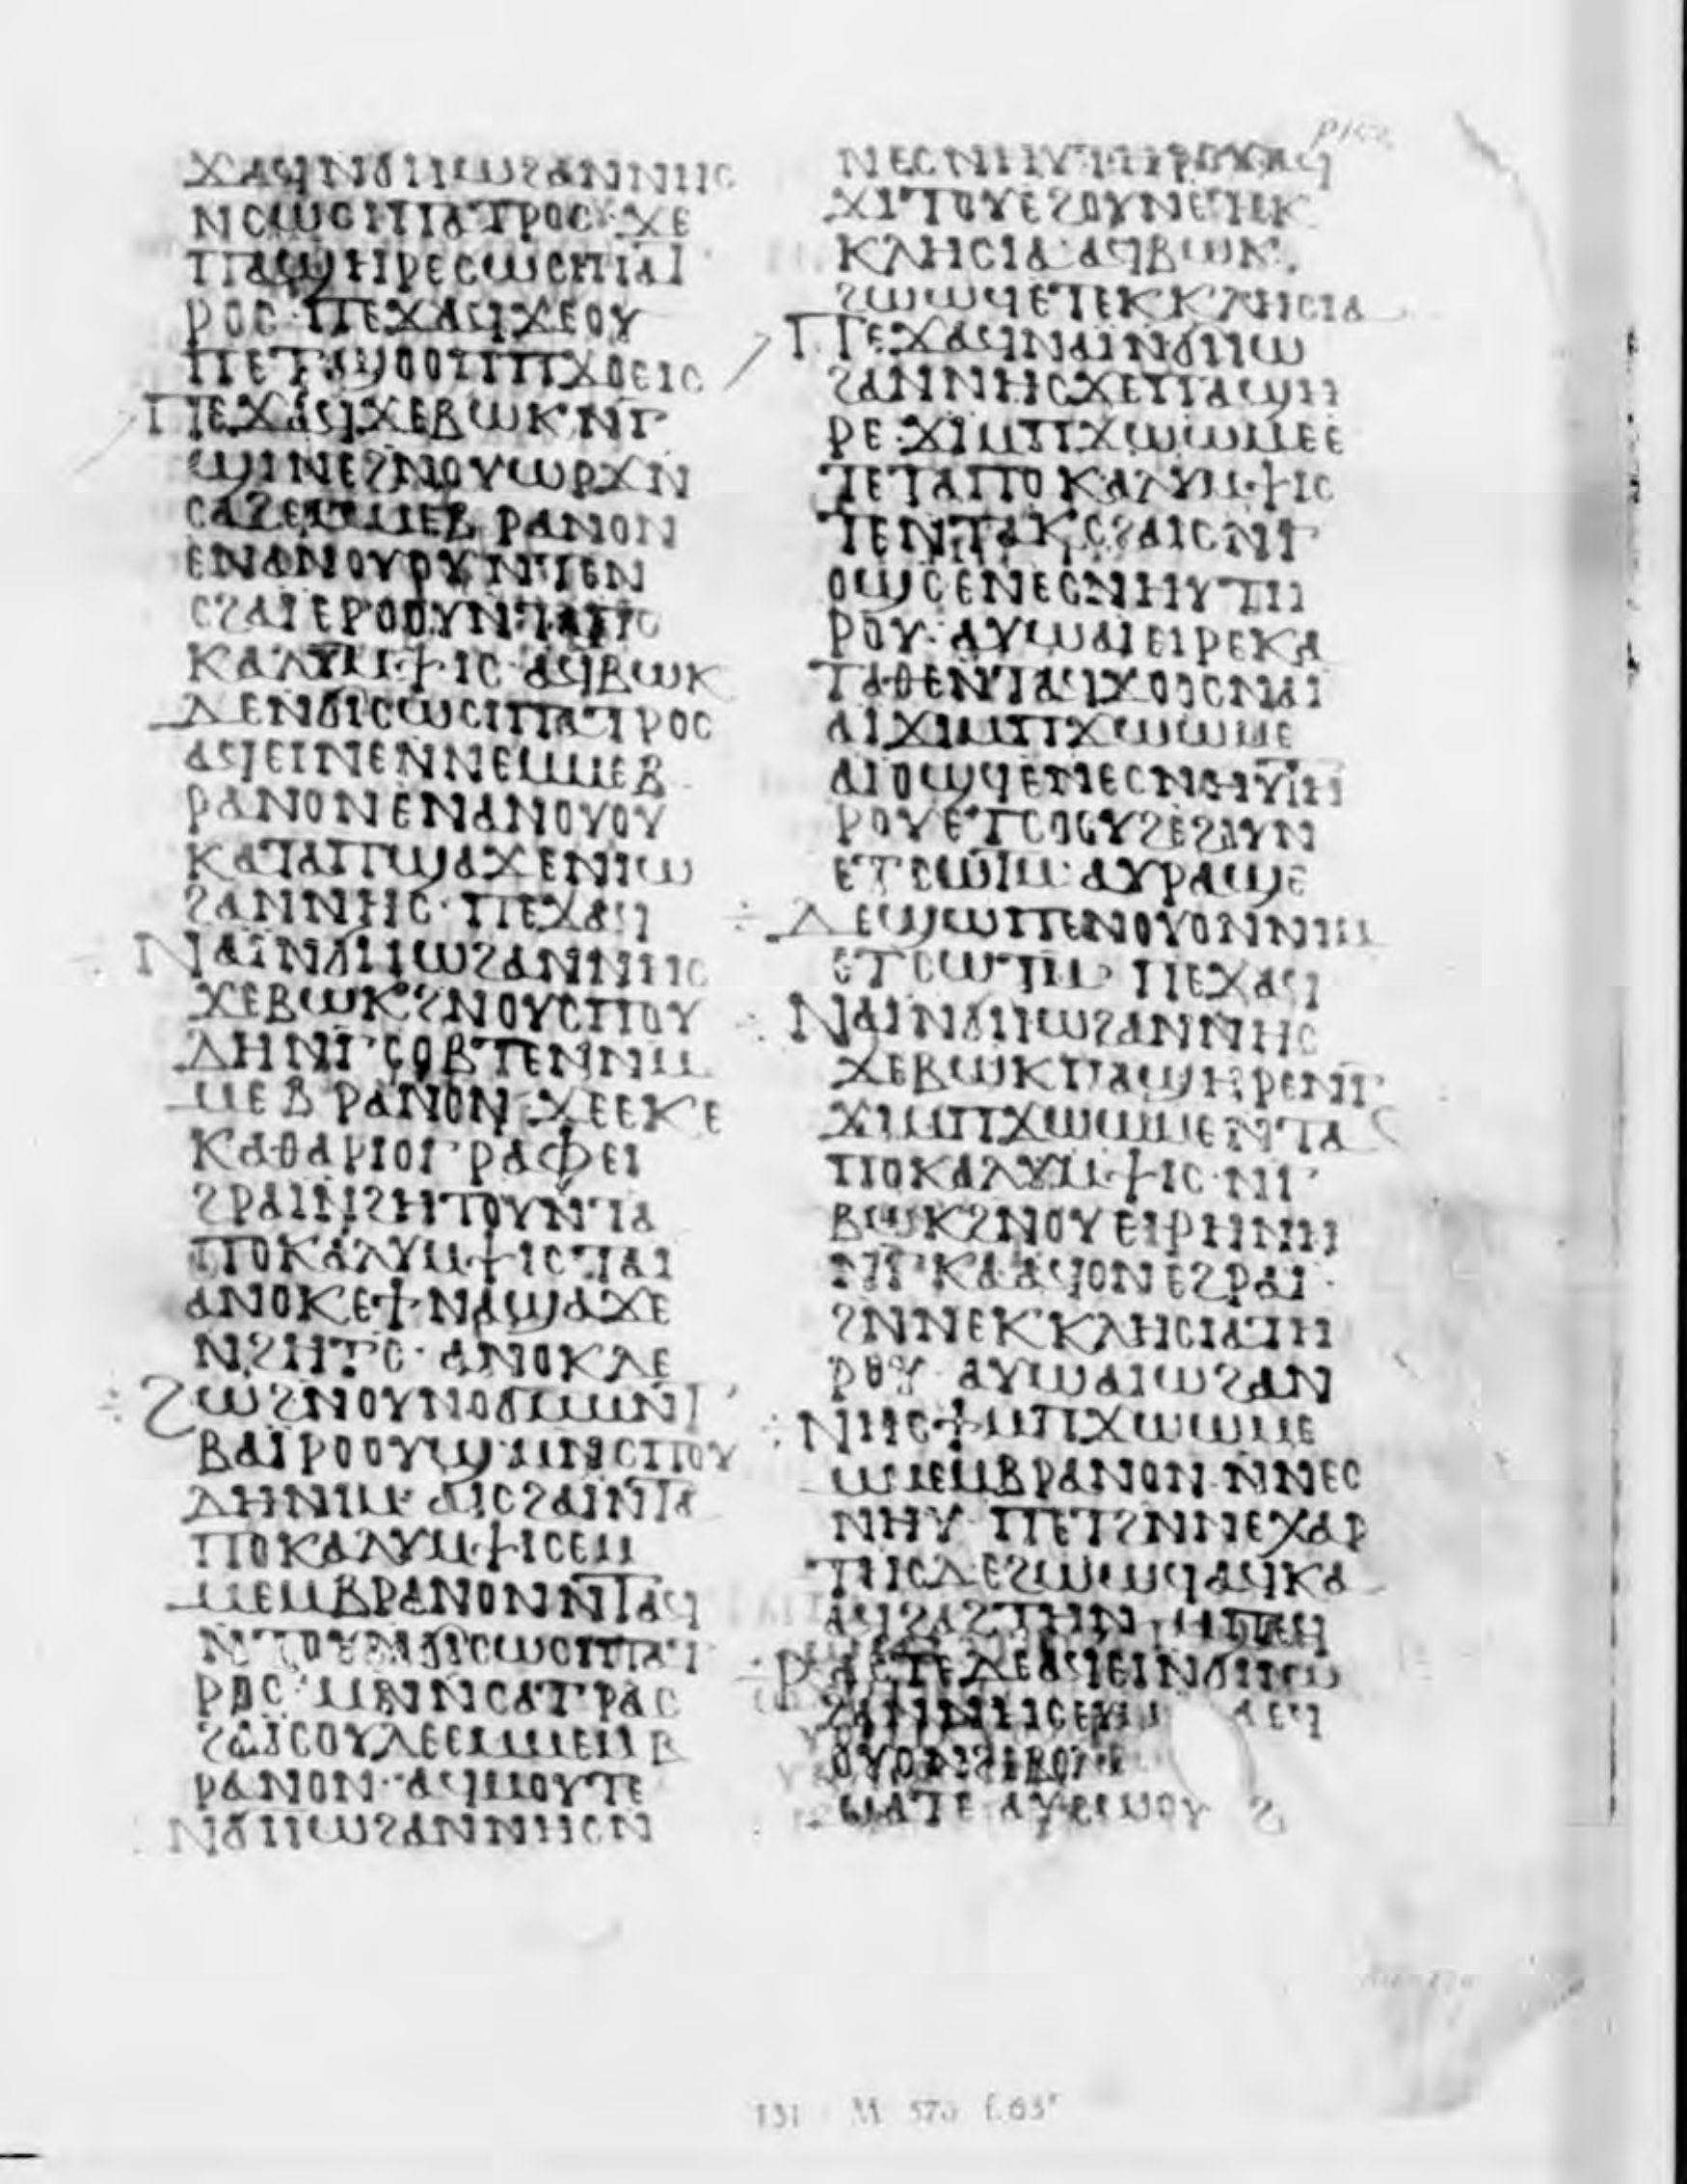 ϪⲀϤⲚϬⲒⲒⲰϨⲀⲚⲚⲎⲤ
ⲚⲤⲰⲤⲒⲠⲀⲦⲢⲟⲤ·ϪⲈ
ⲠⲀϢⲎⲢⲈⲤⲰⲤⲒⲠⲀⲦ
ⲢⲞⲤ·ⲠⲈϪⲀϤϪⲈⲞⲨ
ⲠⲈⲦϢⲞⲞⲠⲠϪⲞⲈⲒⲤ
ⲠⲈϪⲀϤϪⲈⲂⲰⲔⲚⲄ
ϢⲒⲚⲈϨⲚⲞⲨⲰⲢϪⲚ
ⲢⲀⲚⲞⲚ
ⲈⲚⲀⲚⲞⲨⲞⲨⲚⲦⲈⲚ
ⲤϨⲀⲒⲈⲢⲞⲞⲨⲚⲦⲀⲠⲞ
ⲔⲀⲖⲨⲘⲮⲒⲤ·ⲀϤⲂⲰⲔ
ⲆⲈⲚϬⲒⲤⲰⲤⲒⲠⲀⲦⲢⲞⲤ
ⲀϤⲈⲒⲚⲈⲚⲚⲈⲘⲘⲈⲂ
ⲢⲀⲚⲞⲚⲈⲚⲀⲚⲞⲨⲞⲨ
ⲔⲀⲦⲀⲠϢⲀϪⲈⲚⲒⲰ
ϨⲀⲚⲚⲎⲤ·ⲠⲈϪⲀϤ
ⲚⲀϤⲚϬⲒⲒⲰϨⲀⲚⲚⲎⲤ
ϪⲈⲂⲰⲔϨⲚⲞⲨⲤⲠⲞⲨ
ⲆⲎⲚⲄⲤⲞⲂⲦⲈⲚⲚⲘ
ⲘⲈⲂⲢⲀⲚⲞⲚ·ϪⲈⲈⲔⲈ
ⲔⲀⲐⲀⲢⲒⲞⲄⲢⲀⲪⲈⲒ
ϨⲢⲀⲒⲚϨⲎⲦⲞⲨⲚⲦⲀ
ⲠⲞⲔⲀⲖⲨⲘⲮⲒⲤⲦⲀⲒ
ⲀⲚⲞⲔⲈϮⲚⲀϢⲀϪⲈ
ⲚϨⲎⲦⲤ·ⲀⲚⲞⲔⲆⲈ
ϨⲰϨⲚⲞⲨⲚⲞϬⲘⲘⲚⲦ
ⲂⲀⲒⲢⲞⲞⲨϢⲘⲚⲤⲠⲞⲨ
ⲆⲎⲚⲒⲘ·ⲀⲒⲤϨⲀⲒⲚⲦⲀ
ⲠⲞⲔⲀⲖⲨⲘⲮⲒⲤⲈⲠ
ⲘⲈⲘⲂⲢⲀⲚⲞⲚⲚⲦⲀϤ
ⲚⲦⲞⲨⲚϬⲒⲤⲰⲤⲒⲠⲀⲦ
ⲢⲞⲤ·ⲘⲚⲚⲤⲀⲦⲢⲀⲤ
ϨⲀⲒⲤⲞⲨⲆⲈⲈⲘⲘⲈⲘⲂ
ⲢⲀⲚⲞⲚ·ⲀϤⲘⲞⲨⲦⲈ
ⲚϬⲒⲒⲰϨⲀⲚⲚⲎⲤⲚ
ⲚⲈⲤⲚⲎⲨⲦⲎⲢⲞⲨⲀϤ
ϪⲒⲦⲞⲨⲈϨⲞⲨⲚⲈⲦⲈⲔ
ⲔⲖⲎⲤⲒⲀ·ⲀϤⲂⲰⲔ
ϨⲰⲰϤⲈⲦⲈⲔⲔⲖⲎⲤⲒⲀ
ⲠⲈϪⲀϤⲚⲀⲒⲚϬⲒⲒⲰ
ϨⲀⲚⲚⲎⲤϪⲈⲠⲀϢⲎ
ⲢⲈ·ϪⲒⲘⲠϪⲰⲰⲘⲈⲈ
ⲦⲈⲦⲀⲠⲞⲔⲀⲖⲨⲘⲮⲒⲤ
ⲦⲈⲚⲦⲀⲔⲤϨⲀⲒⲤⲚⲄ
ⲞϢⲤⲈⲚⲈⲤⲚⲎⲨⲦⲎ
ⲢⲞⲨ·ⲀⲨⲰⲀⲒⲈⲒⲢⲈⲔⲀ
ⲦⲀⲐⲈⲚⲦⲀϤϪⲞⲞⲤⲚⲀⲒ
ⲀⲒϪⲒⲘⲠϪⲰⲰⲘⲈ
ⲀⲒⲞϢϤⲈⲚⲈⲤⲚⲎⲨⲦⲎ
ⲢⲞⲨⲈⲦⲤⲞⲞⲨϨⲈϨⲞⲨⲚ
ⲈⲦⲤⲰⲦⲘ·ⲀⲨⲢⲀϢⲈ
ⲆⲈϢⲰⲠⲈⲚⲞⲨⲞⲚⲚⲒⲘ
ⲈⲦⲤⲰⲦⲘ·ⲠⲈϪⲀϤ
ⲚⲀⲒⲚϬⲒⲒⲰϨⲀⲚⲚⲎⲤ
ϪⲈⲂⲰⲔⲠⲀϢⲎⲢⲈⲚⲄ
ϪⲒⲘⲠϪⲰⲰⲘⲈⲚⲦⲀ
ⲠⲞⲔⲀⲖⲨⲘⲮⲒⲤ·ⲚⲄ
ⲂⲰⲔϨⲚⲞⲨⲈⲒⲢⲎⲚⲎ
ⲚⲄⲔⲀⲀϤⲞⲚⲈϨⲢⲀⲒ·
ϨⲚⲚⲈⲔⲔⲖⲎⲤⲒⲀⲦⲎ
ⲢⲞⲨ·ⲀⲨⲰⲀⲒⲰϨⲀⲚ
ⲚⲎⲤϮⲘⲠϪⲰⲰⲘⲈ
ⲘⲘⲈⲘⲂⲢⲀⲚⲞⲚ·ⲚⲚⲈⲤ
ⲚⲎⲨ·ⲠⲈⲦϨⲚⲚⲈⲬⲀⲢ
ⲦⲎⲤⲆⲈϨⲰⲰϤⲀϤⲔⲀ
ⲀϤϨⲀϨⲦⲎⲚ
ⲢⲀⲤⲦⲈⲆⲈⲀϤⲈⲒⲚϬⲒⲒⲰ
ϨⲀⲚⲚⲎⲤ
ⲞⲨⲞⲚϨⲈⲂⲞⲖ
131 M 570 f.63ʳ